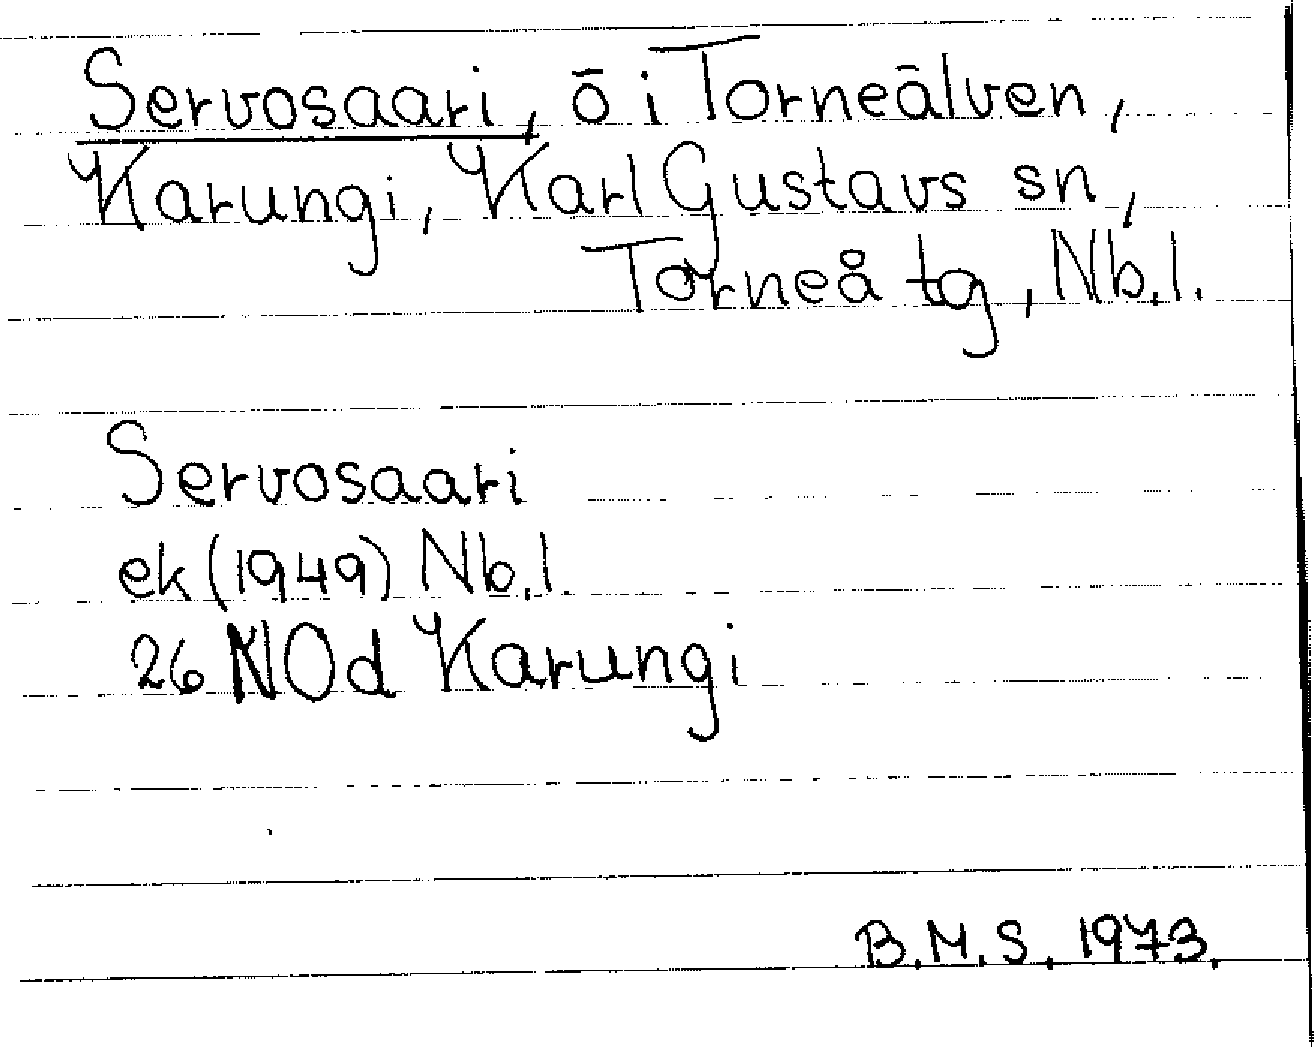 Servosaari, ö i Torneälven,
Karungi, Karl Gustavs sn,
Torneå tg, Nb.l.
Servosaari
ek (1949) Nb.l.
26 NOd Karungi
B.M.S. 1973.